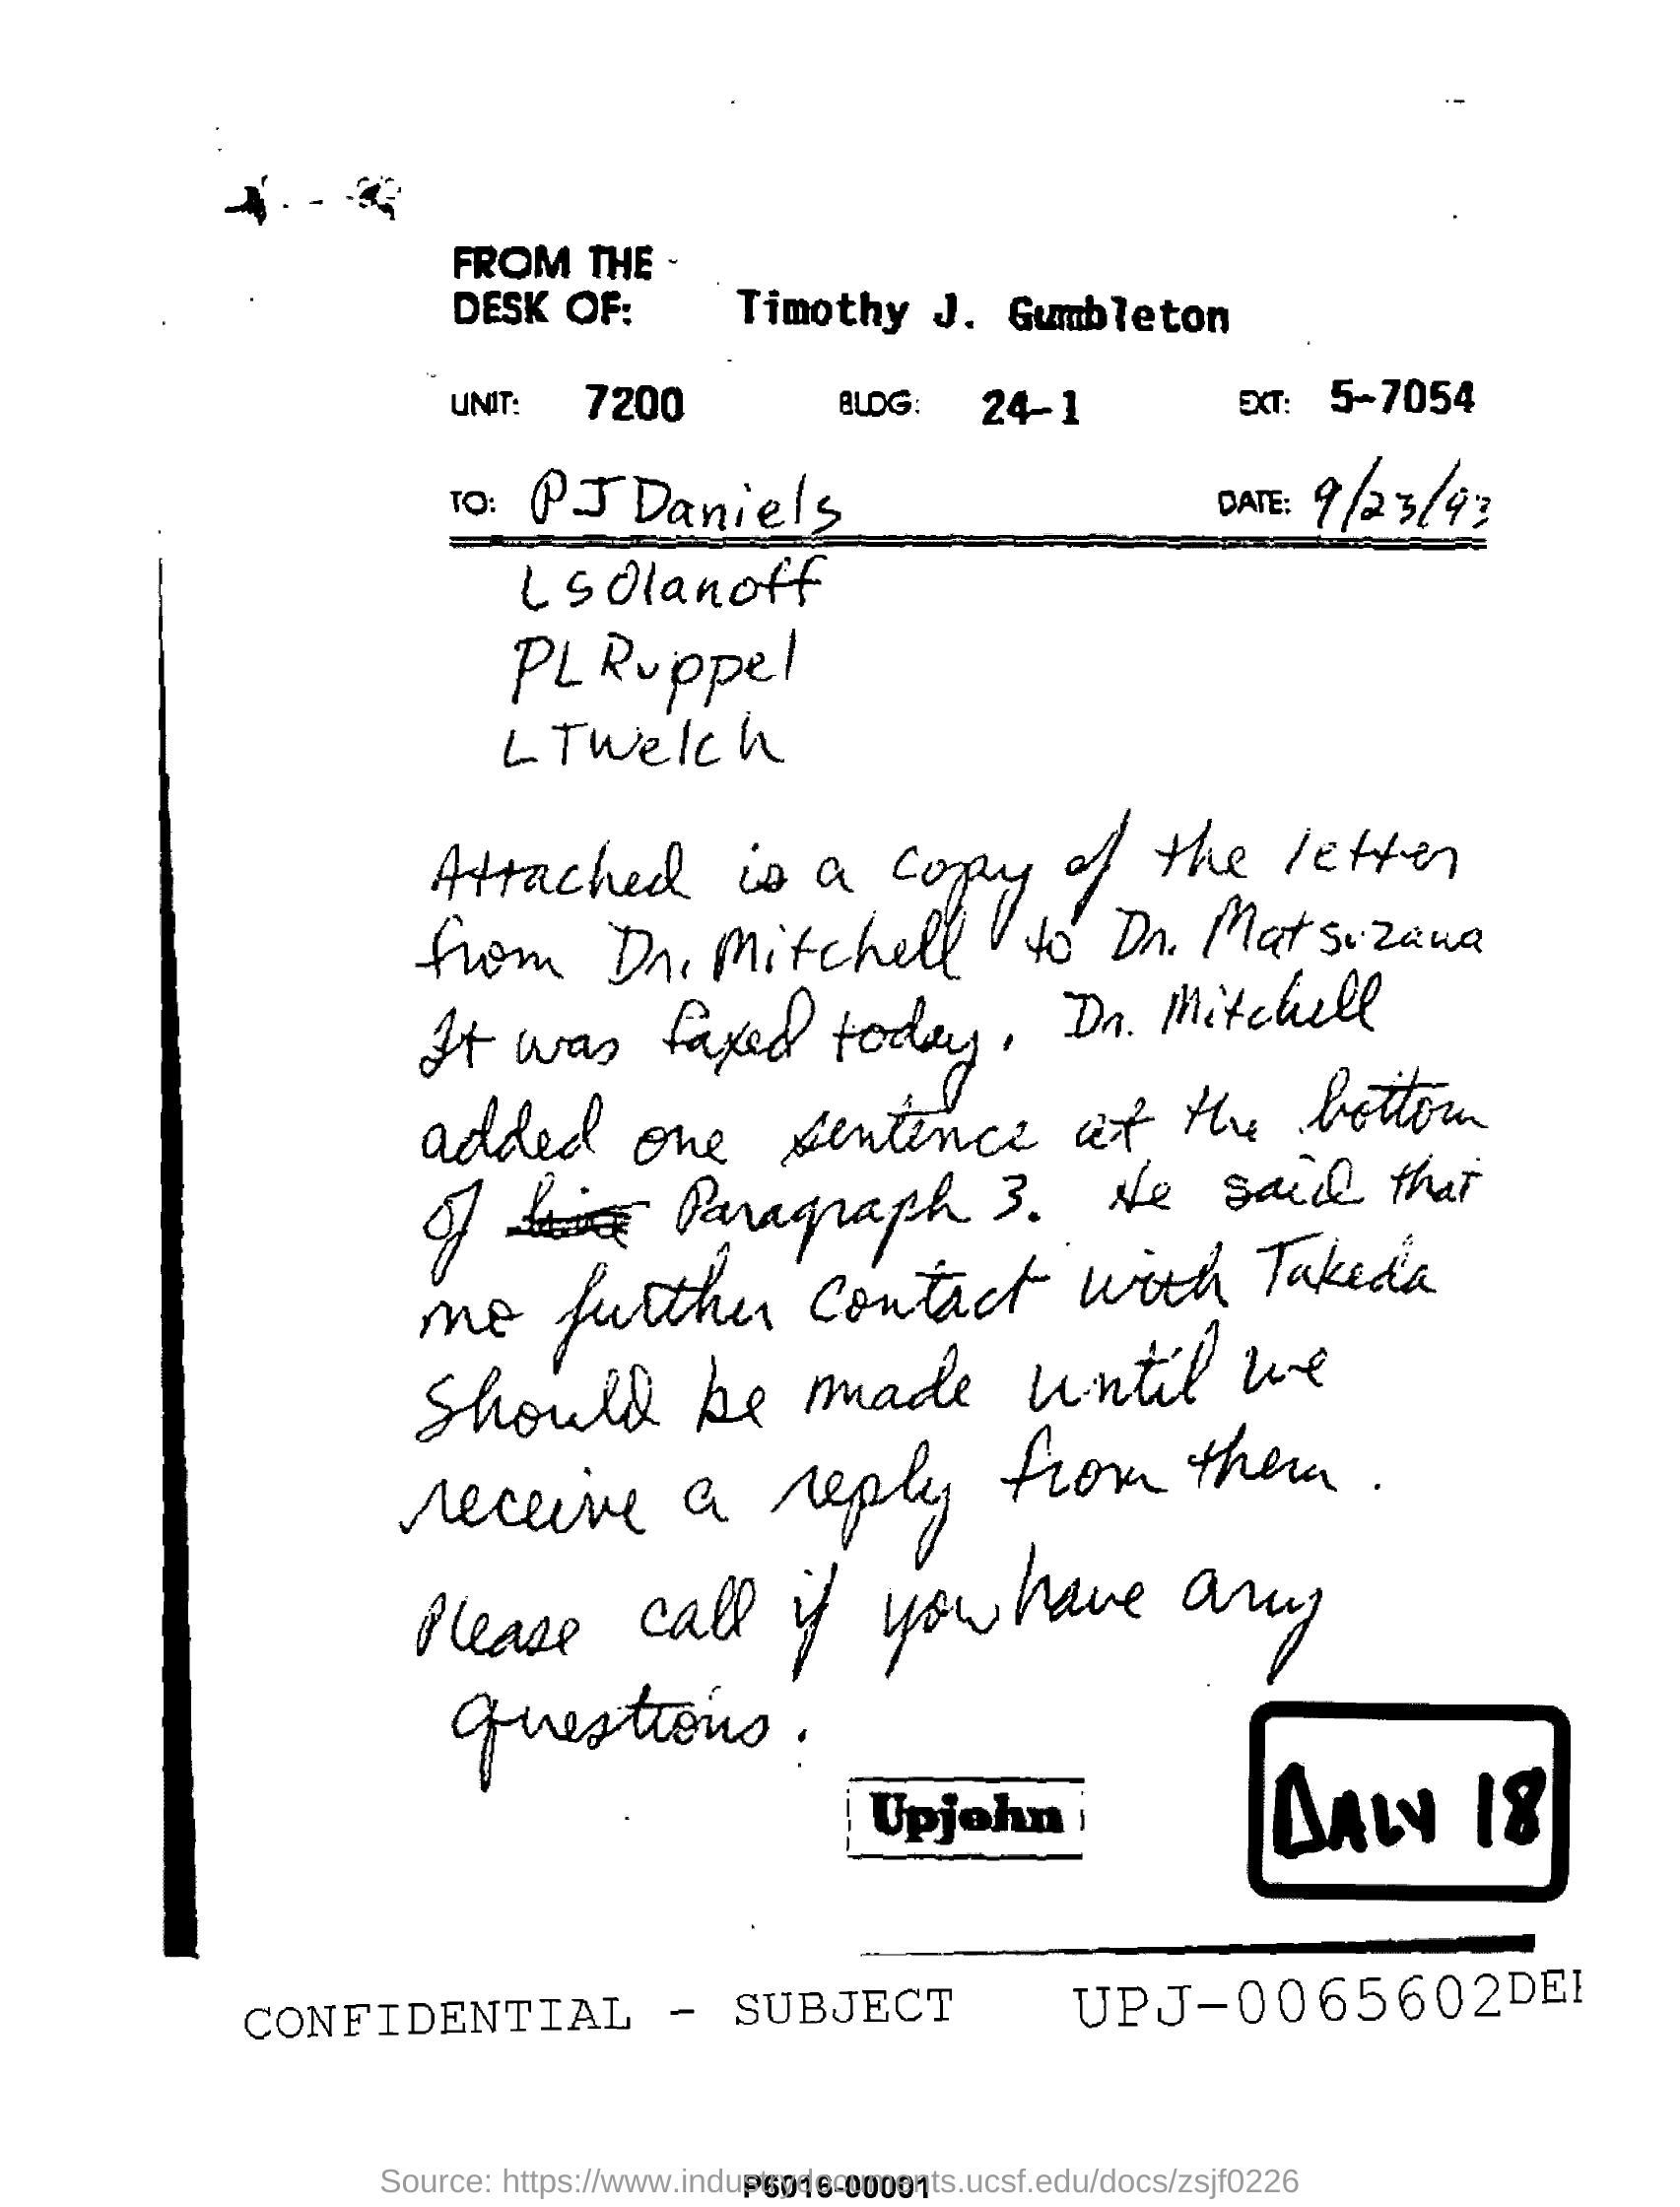 FROM THE
DESK OF: Timothy J. Gumbleton
UNIT: 7200 BLDG: 24-1 EXT: 5-7054
TO: PJ Daniels DATE: 9/23/93
LS Olanoff
PL Ruppel
LT Welch
Attached is a copy of the letter
from Dr. Mitchell to Dr. Matsuzawa
It was faxed today. Dr. Mitchell
added one sentence at the bottom
of Paragraph 3. He said that
no further contact with Takeda
should be made until we
receive a reply from them.
Please call if you have any
questions.
Upjohn
DALY 18
CONFIDENTIAL - SUBJECT UPJ-0065602DEI
Source: https://www.industrydocuments.ucsf.edu/docs/zsjf0226
P6016-00001